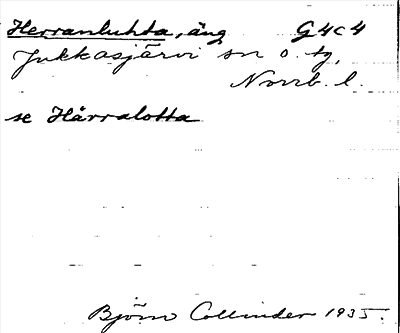 Herranluhta, äng G4c4
Jukkasjärvi sn o. tg,
Norrb. l.
se Härralotta
Björn Collinder 1935.